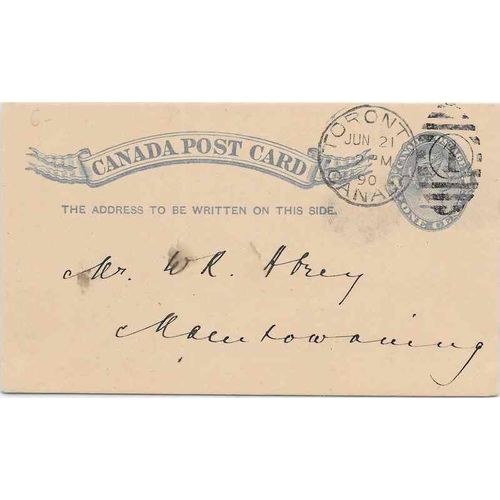 6-
CANADA POST CARD
THE ADDRESS TO BE WRITTEN ON THIS SIDE.
TORONTO
JUN 21
PM
90
CANADA
ONE CE
Mr. W R. Abrey
Manitowaning